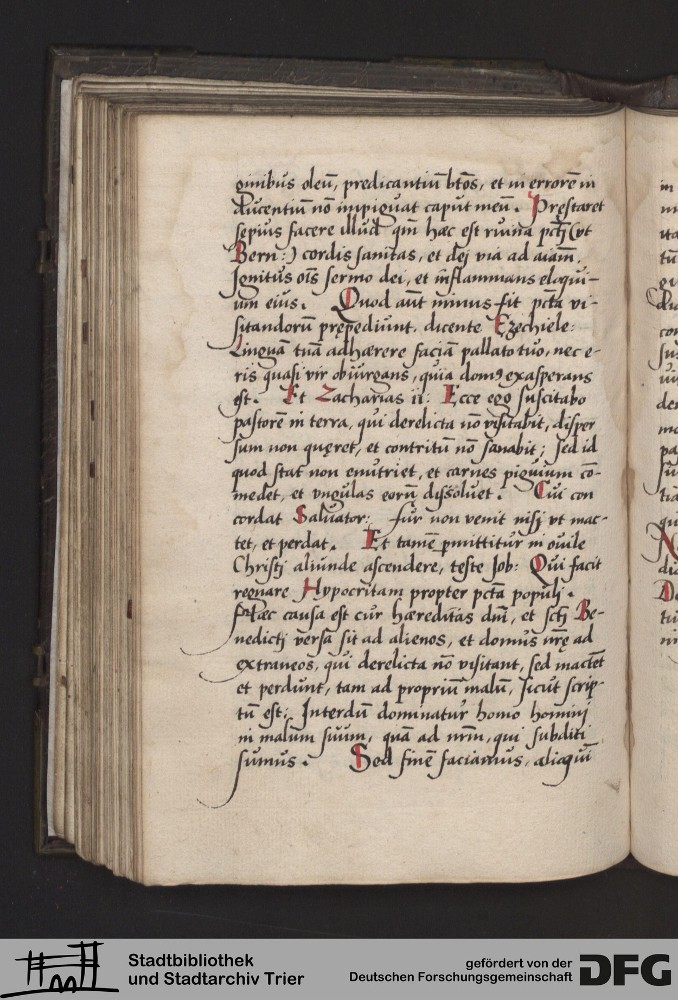 ginibus oleū, predicantiū btōs, et in errorē in
ducentiū nō impiguat caput meū. Pręstaret
sepius facere illud qm̄ hæc est ruina
Bern:) cordis sanitas, et dei via ad aiam̄.
Ignitus oīs sermo dei, et inflammans eloqui-
um eius. Quod aūt minus fit pctā vi-
sitandorū prępediunt, dicente Ezechiele:
Linguā tuā adhærere faciā pallato tuo, nec e-
ris quasi vir obiurgans, quia domꝯ exasperans
est. Et Zacharias ii: Ecce ego suscitabo
pastorē in terra, qui derelicta nō visitabit, disper
sum non quęret, et contritū nō sanabit; sed id
quod stat non enutriet, et carnes piguium cō-
medet, et vngulas eorū dissoluet. Cui con
cordat Saluator: fur non venit nisj vt mac-
tet, et perdat. Et tamē pmittitur in ouile
Christj aliunde ascendere, teste Job: Qui facit
regnare Hypocritam propter pctā populj.
Hæc causa est cur hæreditas dnī, et sctj Be-
nedictj versa sit ad alienos, et domus nrę ad
extraneos, qui derelicta nō visitant, sed mactēt
et perdunt, tam ad propriū malū, sicut scrip-
tū est: Interdū dominatur homo hominj
in malum suum, quā ad nrm̄, qui subditi
sumus. Sed finē faciamus, alioquī
Stadtbibliothek
und Stadtarchiv Trier
gefördert von der
Deutschen Forschungsgemeinschaft
DFG